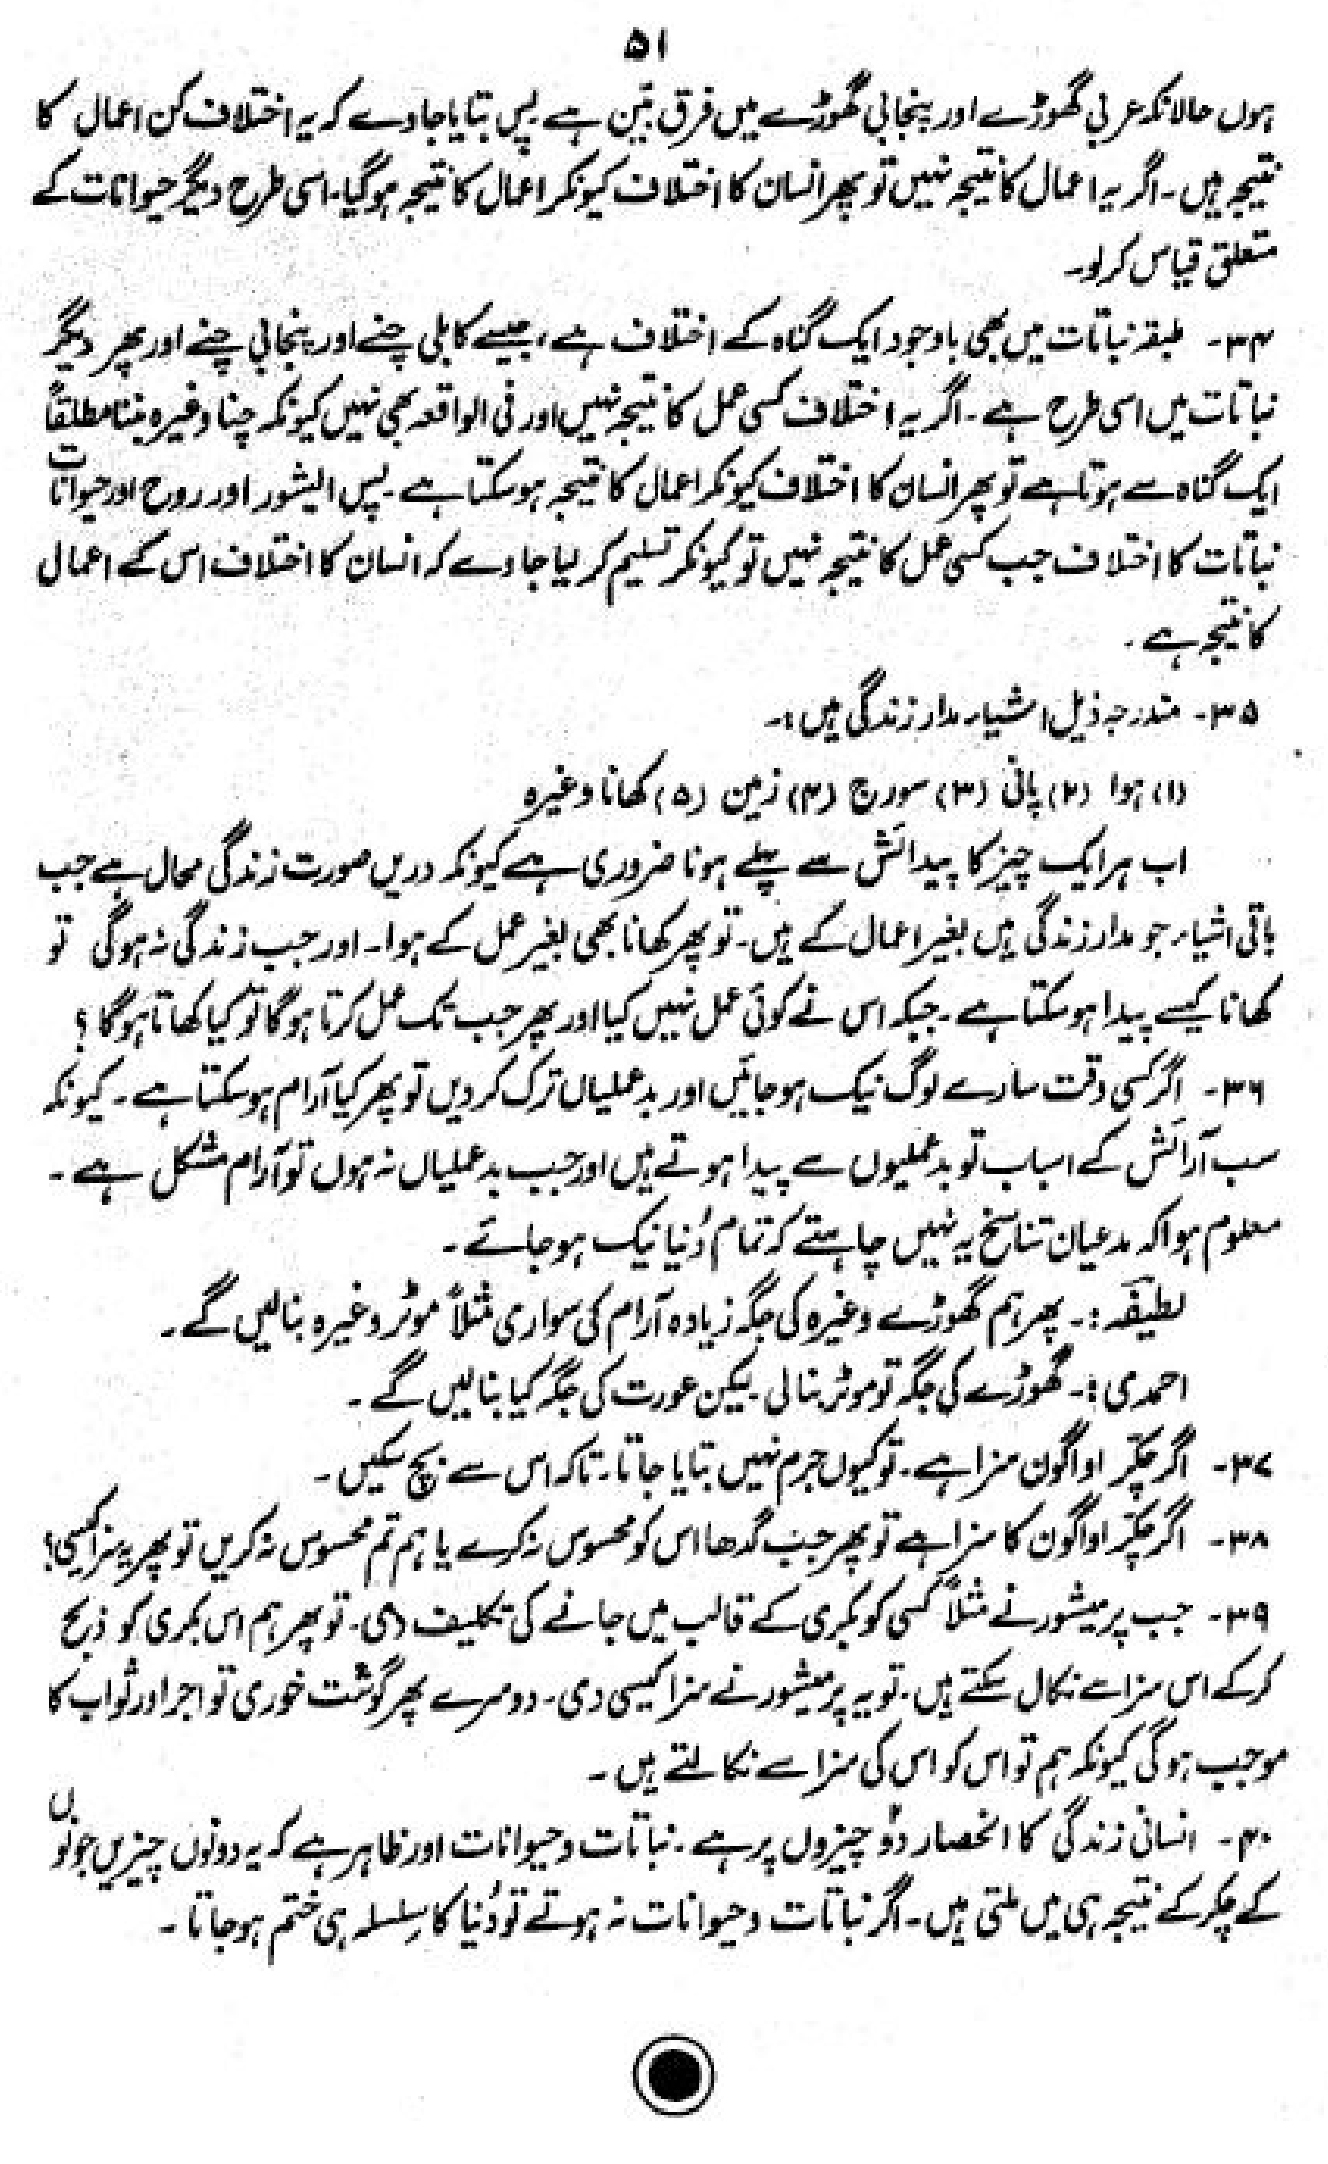 ۵۱
ہوں حالانکہ عربی گھوڑے اور پنجابی گھوڑے میں فرق بیّن ہے پس بتایا جاوے کہ یہ اختلاف کن اعمال کا
نتیجہ ہیں۔ اگر یہ اعمال کا نتیجہ نہیں تو پھر انسان کا اختلاف کیونکر اعمال کا نتیجہ ہوگیا۔ اسی طرح دیگر حیوانات کے
متعلق قیاس کر لو۔
۳۴۔ طبقہ نباتات میں بھی باوجود ایک گناہ کے اختلاف ہے، جیسے کابلی چنے اور پنجابی چنے اور پھر دیگر
نباتات میں اسی طرح ہے۔ اگر یہ اختلاف کسی عمل کا نتیجہ نہیں اور فی الواقعہ بھی نہیں کیونکر چنا وغیرہ بننا مطلقاً
ایک گناہ سے ہوتا ہے تو پھر انسان کا اختلاف کیونکر اعمال کا نتیجہ ہوسکتا ہے۔ پس الیشور اور روح اور حیوانات
نباتات کا اختلاف جب کسی عمل کا نتیجہ نہیں تو کیونکر تسلیم کر لیا جاوے کہ انسان کا اختلاف اس کے اعمال
کا نتیجہ ہے۔
۳۵۔ مندرجہ ذیل اشیاء مدار زندگی ہیں:۔
(۱) ہوا (۲) پانی (۳) سورج (۴) زمین (۵) کھانا وغیرہ
اب ہر ایک چیز کا پیدائش سے پہلے ہونا ضروری ہے کیونکہ دریں صورت زندگی محال ہے جب
باقی اشیاء جو مدار زندگی ہیں بغیر اعمال کے ہیں۔ تو پھر کھانا بھی بغیر عمل کے ہوا۔ اور جب زندگی نہ ہوگی تو
کھانا کیسے پیدا ہوسکتا ہے۔ جبکہ اس نے کوئی عمل نہیں کیا اور پھر جب تک عمل کرتا ہوگا تو کیا کھاتا ہوگا؟
۳۶۔ اگر کسی وقت سارے لوگ نیک ہوجائیں اور بدعملیاں ترک کردیں تو پھر کیا آرام ہوسکتا ہے۔ کیونکہ
سب آرائش کے اسباب تو بدعملیوں سے پیدا ہوتے ہیں اور جب بدعملیاں نہ ہوں تو آرام مشکل ہے۔
معلوم ہوا کہ مدعیان تناسخ یہ نہیں چاہتے کہ تمام دُنیا نیک ہوجائے۔
لطیفہ:۔ پھر ہم گھوڑے وغیرہ کی جگہ زیادہ آرام کی سواری مثلاً موٹر وغیرہ بنالیں گے۔
احمدی:۔ گھوڑے کی جگہ تو موٹر بنالی۔ لیکن عورت کی جگہ کیا بنالیں گے۔
۳۷۔ اگر چکّر اواگون سزا ہے۔ تو کیوں جرم نہیں بتایا جاتا۔ تاکہ اس سے بچ سکیں۔
۳۸۔ اگر چکّر اواگون کا سزا ہے تو پھر جب گدھا اس کو محسوس نہ کرے یا ہم تم محسوس نہ کریں تو پھر یہ سزا کیسی؟
۳۹۔ جب پرمیشور نے مثلاً کسی کو بکری کے قالب میں جانے کی تکلیف دی۔ تو پھر ہم اس بکری کو ذبح
کرکے اس سزا سے نکال سکتے ہیں۔ تو یہ پرمیشور نے سزا کیسی دی۔ دوسرے پھر گوشت خوری تو اجر اور ثواب کا
موجب ہوگی کیونکہ ہم تو اس کو اس کی سزا سے نکالتے ہیں۔
۴۰۔ انسانی زندگی کا انحصار دو چیزوں پر ہے۔ نباتات و حیوانات اور ظاہر ہے کہ یہ دونوں چیزیں جونوں
کے چکر کے نتیجہ ہی میں ملتی ہیں۔ اگر نباتات و حیوانات نہ ہوتے تو دُنیا کا سِلسلہ ہی ختم ہوجاتا۔